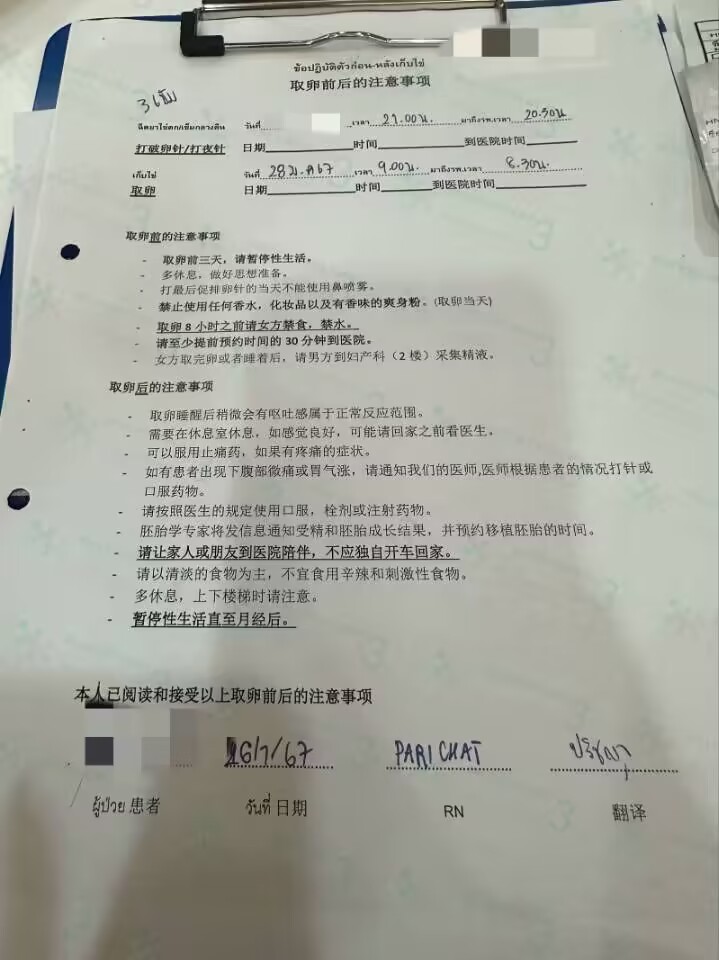 ข้อปฏิบัติตัวก่อน-หลังเก็บไข่
取卵前后的注意事项
3 เข็ม
ฉีดยาไข่ตก/เข็มกลางคืน วันที่ เวลา 21.00 น. มาถึงรพ.เวลา 20.30น
打破卵针/打夜针 日期 时间 到医院时间
เก็บไข่ วันที่ 28 ม.ค 67 เวลา 9.00น. มาถึงรพ.เวลา 8.30น.
取卵 日期 时间 到医院时间
取卵前的注意事项
- 取卵前三天，请暂停性生活。
- 多休息，做好思想准备。
- 打最后促排卵针的当天不能使用鼻喷雾。
- 禁止使用任何香水，化妆品以及有香味的爽身粉。(取卵当天)
- 取卵 8 小时之前请女方禁食，禁水。
- 请至少提前预约时间的 30 分钟到医院。
- 女方取完卵或者睡着后，请男方到妇产科（2 楼）采集精液。
取卵后的注意事项
- 取卵睡醒后稍微会有呕吐感属于正常反应范围。
- 需要在休息室休息，如感觉良好，可能请回家之前看医生。
- 可以服用止痛药，如果有疼痛的症状。
- 如有患者出现下腹部微痛或胃气涨，请通知我们的医师,医师根据患者的情况打针或
口服药物。
- 请按照医生的规定使用口服，栓剂或注射药物。
- 胚胎学专家将发信息通知受精和胚胎成长结果，并预约移植胚胎的时间。
- 请让家人或朋友到医院陪伴，不应独自开车回家。
- 请以清淡的食物为主，不宜食用辛辣和刺激性食物。
- 多休息，上下楼梯时请注意。
- 暂停性生活直至月经后。
本人已阅读和接受以上取卵前后的注意事项
26/1/67 PARICHAT ปริชญา
ผู้ป่วย 患者 วันที่ 日期 RN 翻译